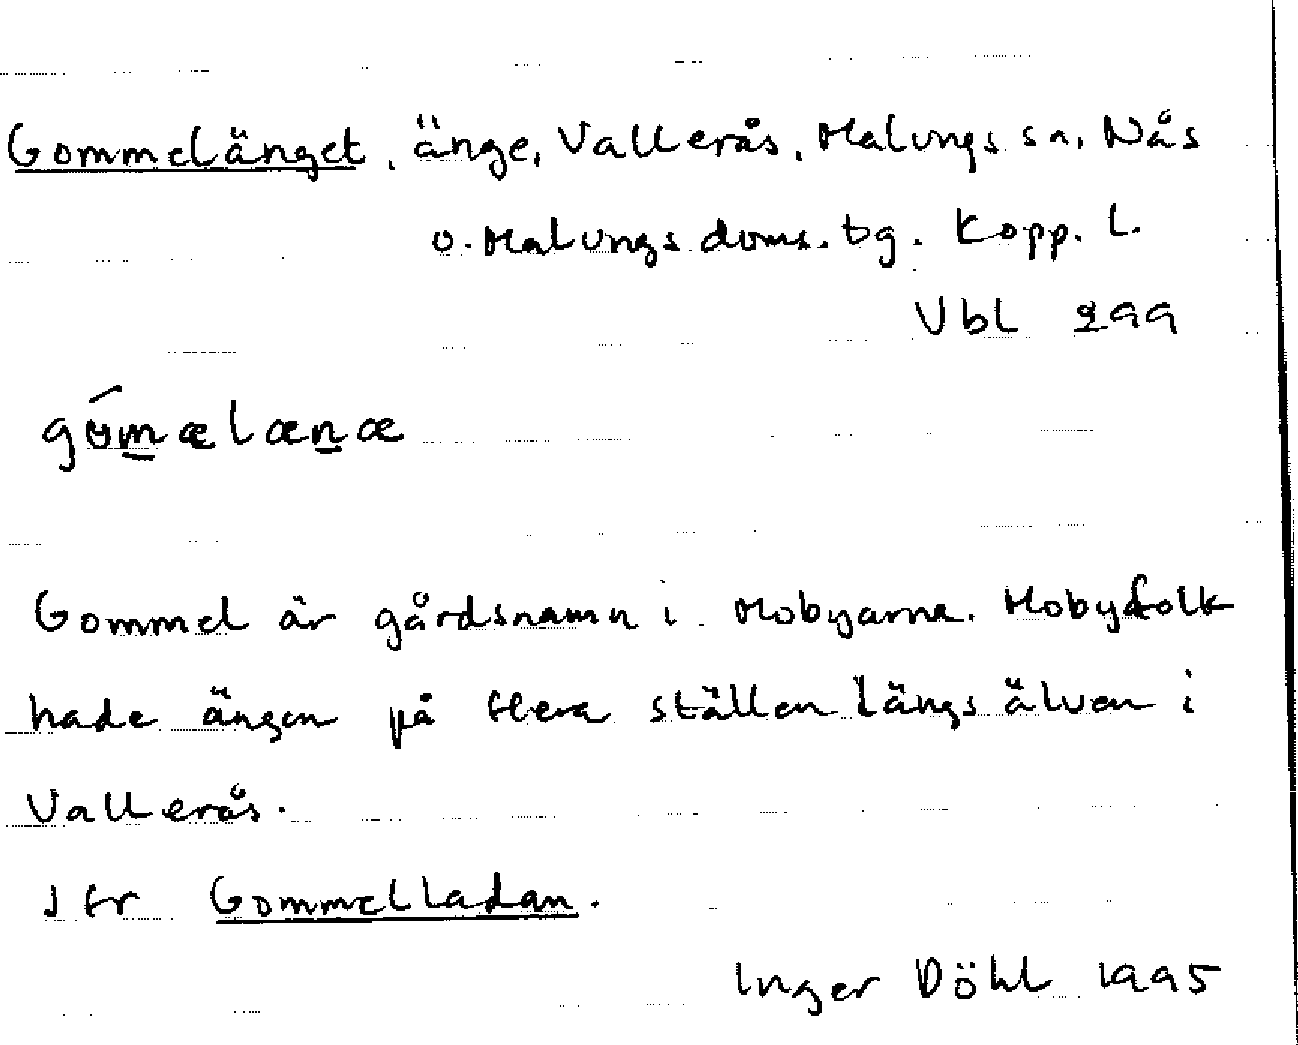 Gommelänget, änge, Vallerås, Malungs sn, Nås
o. Malungs doms. bg. Kopp. L.
Vbl 299
gómælænæ
Gommel är gårdsnamn i Mobyarna. Mobyfolk
hade ängen på flera ställen längs älven i
Vallerås.
Jfr Gommelladan.
Inger Döhl 1995